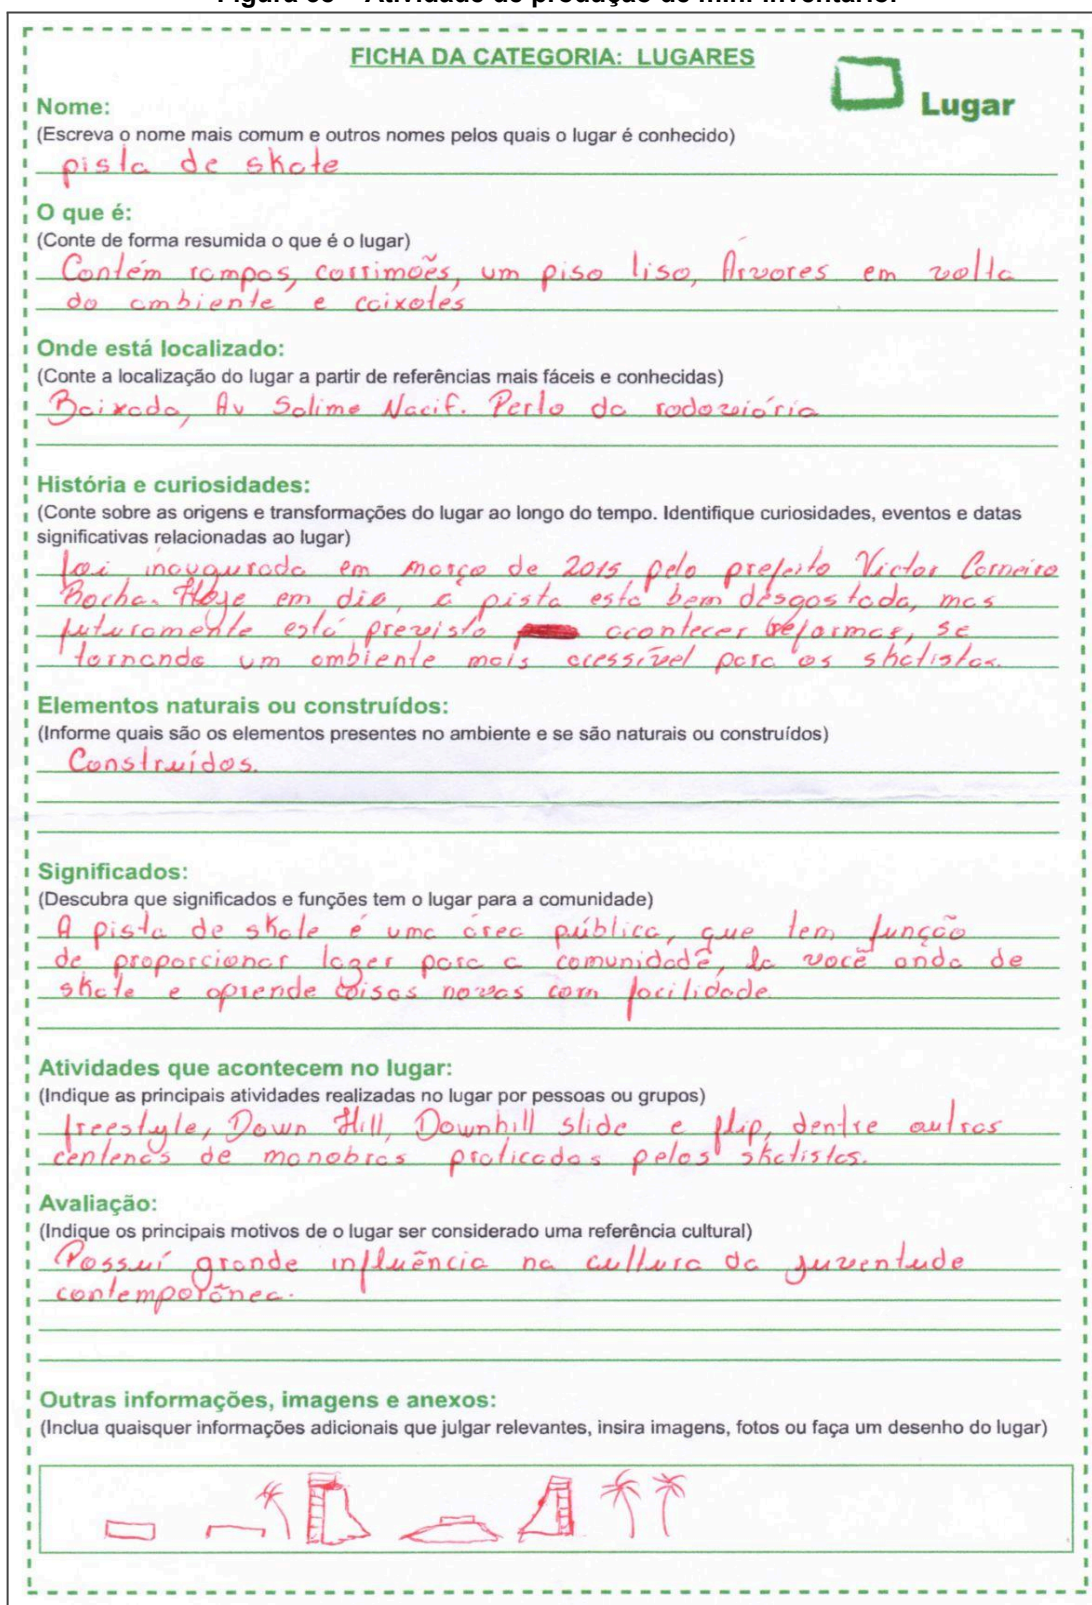 FICHA DA CATEGORIA: LUGARES
Lugar
Nome:
(Escreva o nome mais comum e outros nomes pelos quais o lugar é conhecido)
pista de skate
O que é:
(Conte de forma resumida o que é o lugar)
Contém rampas, corrimões, um piso liso, Árvores em volta
do ambiente e caixotes
Onde está localizado:
(Conte a localização do lugar a partir de referências mais fáceis e conhecidas)
Baixada, Av Salime Nacif. Perto da rodoviária
História e curiosidades:
(Conte sobre as origens e transformações do lugar ao longo do tempo. Identifique curiosidades, eventos e datas
significativas relacionadas ao lugar)
foi inaugurada em março de 2015 pelo prefeito Victor Carneiro
Rocha. Hoje em dia, a pista está bem desgastada, mas
futuramente está previsto acontecer reformas, se
tornando um ambiente mais acessível para os skatistas.
Elementos naturais ou construídos:
(Informe quais são os elementos presentes no ambiente e se são naturais ou construídos)
Construídos.
Significados:
(Descubra que significados e funções tem o lugar para a comunidade)
A pista de skate é uma área pública, que tem função
de proporcionar lazer para a comunidade, la você anda de
skate e aprende coisas novas com facilidade.
Atividades que acontecem no lugar:
(Indique as principais atividades realizadas no lugar por pessoas ou grupos)
freestyle, Down Hill, Downhill slide e flip, dentre outras
centenas de manobras praticadas pelos skatistas.
Avaliação:
(Indique os principais motivos de o lugar ser considerado uma referência cultural)
Possuí grande influência na cultura da juventude
contemporânea.
Outras informações, imagens e anexos:
(Inclua quaisquer informações adicionais que julgar relevantes, insira imagens, fotos ou faça um desenho do lugar)